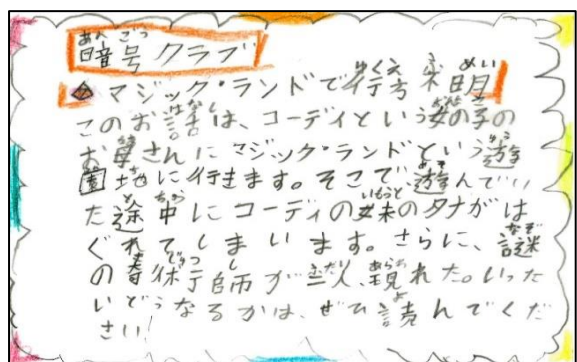 暗号クラブ
◆マジック・ランドで行方不明
このお話は、コーディという女の子の
お母さんにマジック・ランドという遊
園地に行きます。そこで遊んでい
た途中にコーディの妹のタナがは
ぐれてしまいます。さらに、謎
の奇術師が二人、現れた。いった
いどうなるかは、ぜひ読んでくだ
さい!